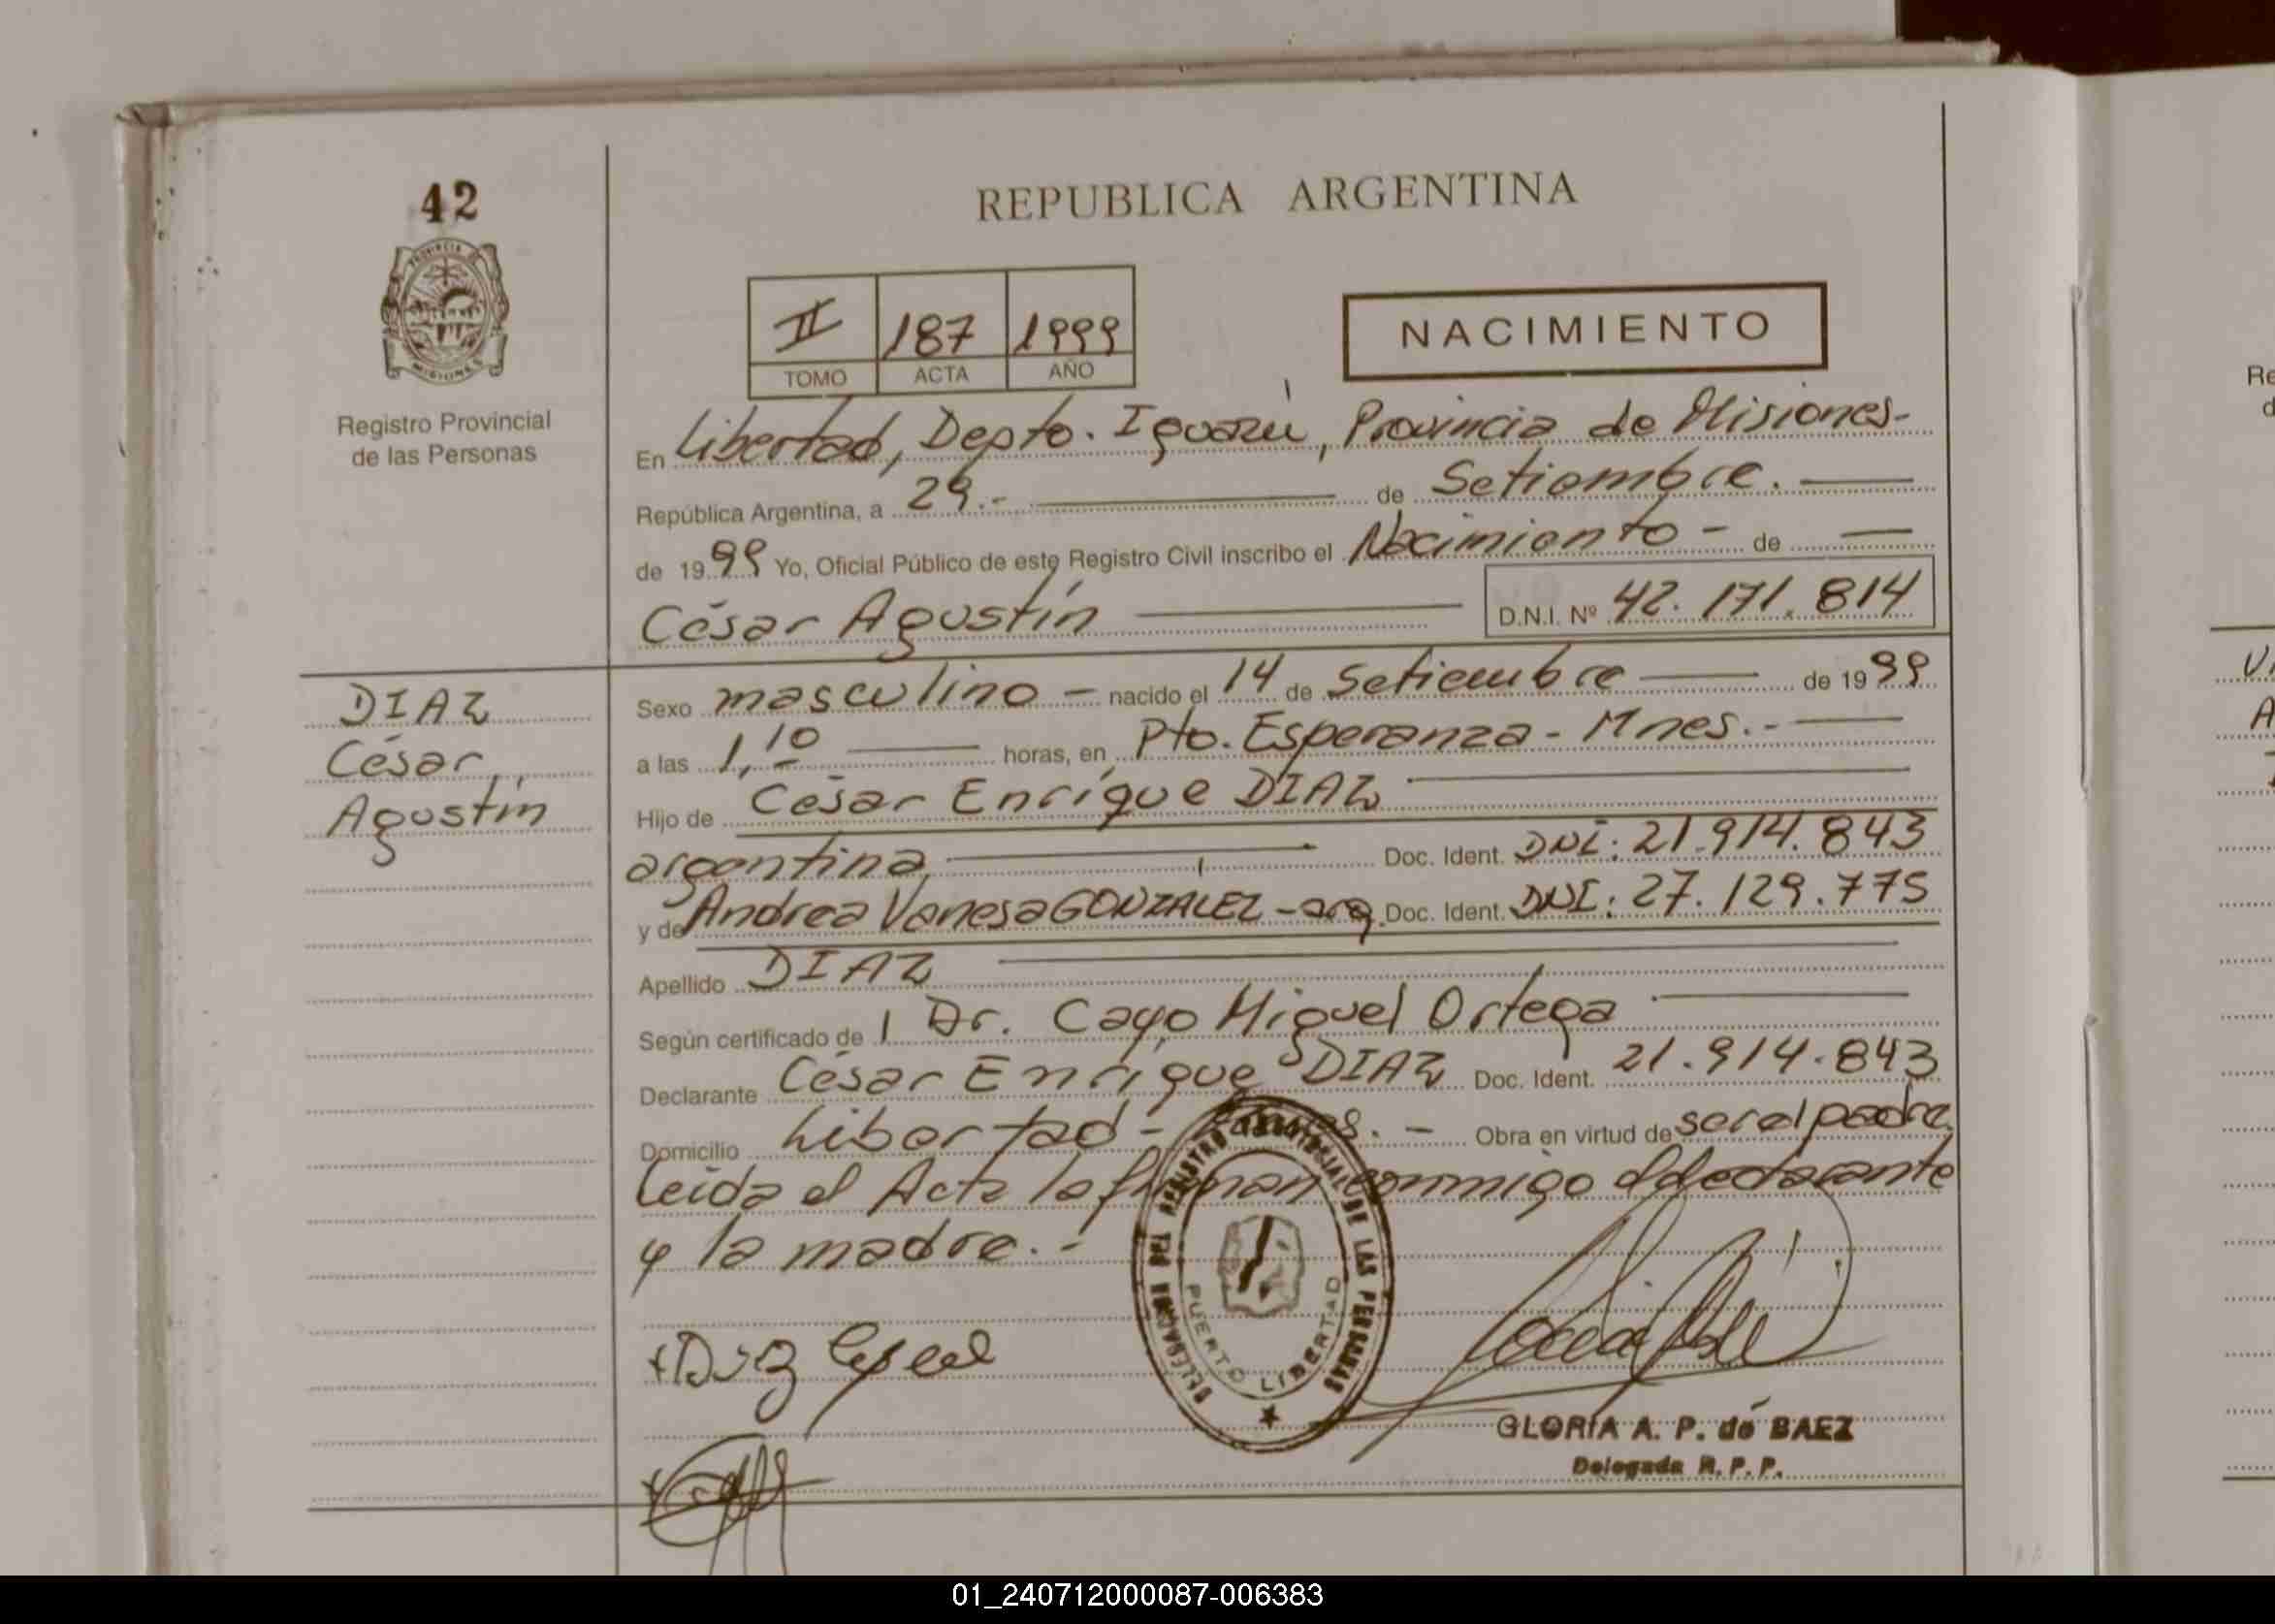 42
REPUBLICA ARGENTINA
PROVINCIA DE
MISIONES
Registro Provincial
de las Personas
II 187 1999
TOMO ACTA AÑO
NACIMIENTO
En Libertad, Depto. Iguazú, Provincia de Misiones-
República Argentina, a 29.- de Setiembre.
de 1999 Yo, Oficial Público de este Registro Civil inscribo el Nacimiento - de —
César Agustín D.N.I. Nº 42.171.814
DIAZ
César
Agustín
Sexo masculino - nacido el 14 de Setiembre de 1999
a las 1,10 horas, en Pto. Esperanza - Mnes.-
Hijo de César Enrique DIAZ
argentina, Doc. Ident. DNI: 21.914.843
y de Andrea Vanesa GONZALEZ - arg. Doc. Ident. DNI: 27.129.775
Apellido DIAZ
Según certificado de l Dr. Cayo Miguel Ortega
Declarante César Enrique DIAZ Doc. Ident. 21.914.843
Domicilio Libertad - Obra en virtud de ser el padre
Leída el Acta la firman conmigo el declarante
y la madre.-
DELEGACION DEL REGISTRO PROVINCIAL DE LAS PERSONAS
PUERTO LIBERTAD
Diaz
GLORIA A. P. de BAEZ
Delegada R. P. P.
Re
01_240712000087-006383